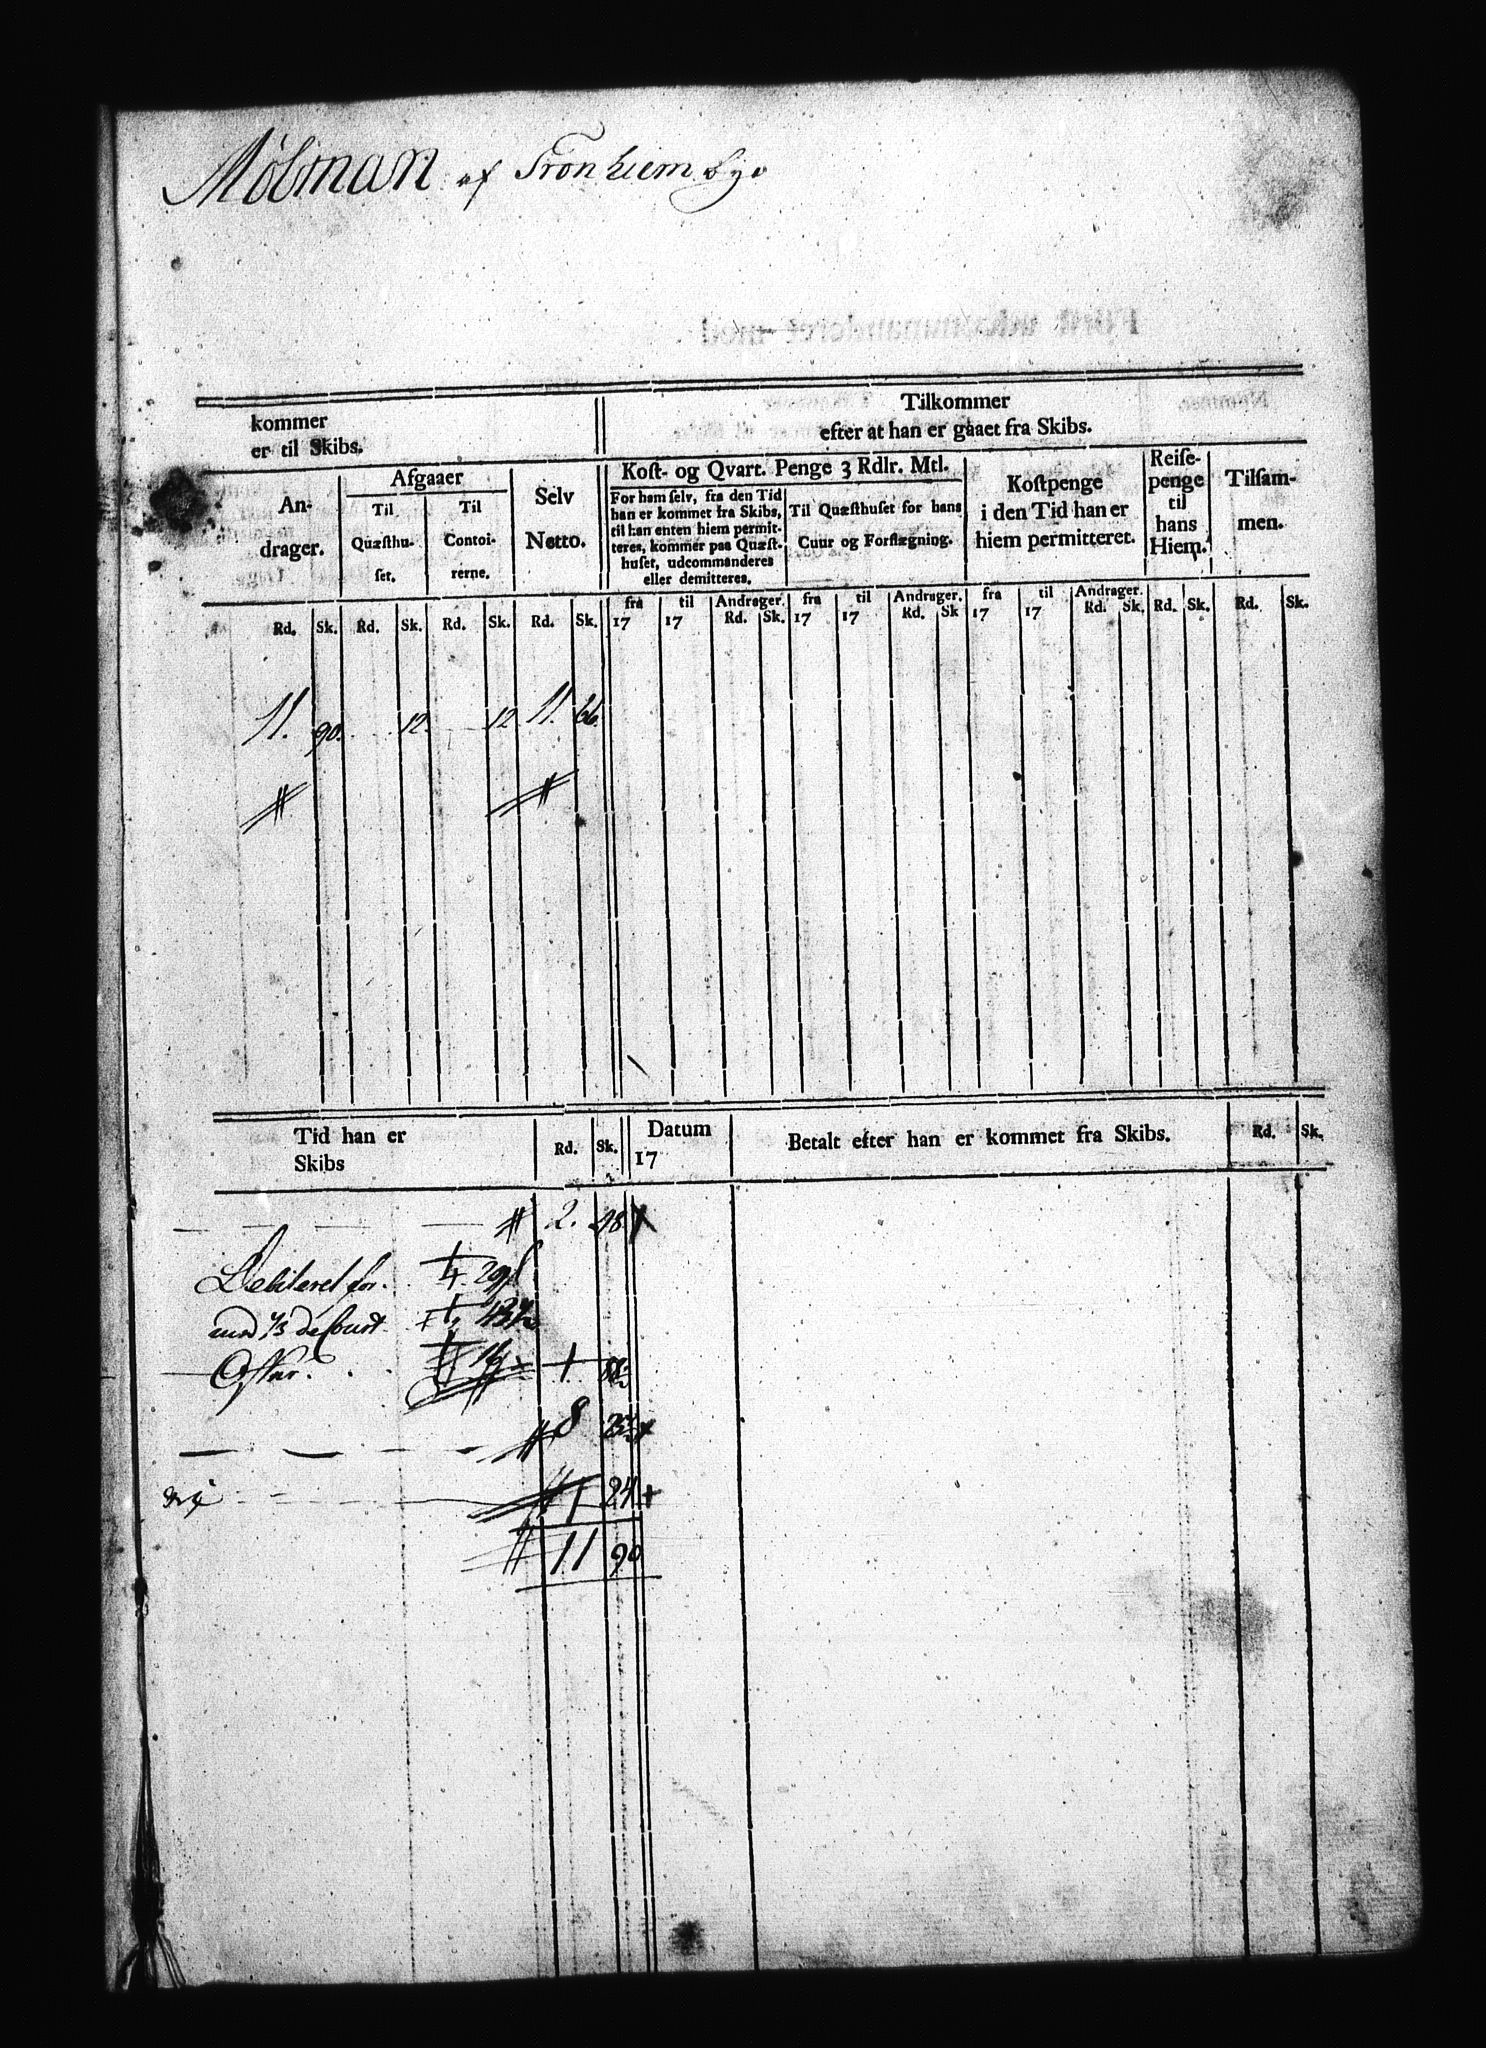 Mølman af Tronhiem bye
kommer
er til Skibs.
Tilkommer
efter at han er gaaet fra Skibs.
An-
drager.
Afgaaer
Til
Quæsthu-
set.
Til
Contoi-
rerne.
Selv
Netto.
Kost- og Qvart. Penge 3 Rdlr. Mtl.
For ham selv, fra den Tid
han er kommet fra Skibs,
til han enten hiem permit-
teres, kommer paa Quæst-
huset, udcommanderes
eller demitteres.
Til Quæsthuset for hans
Cuur og Forflægning.
Kostpenge
i den Tid han er
hiem permitteret.
Reise-
penge
til
hans
Hiem.
Tilsam-
men.
Rd. Sk. Rd. Sk. Rd. Sk. Rd. Sk.
fra 17 til 17 Andrager. Rd. Sk.
fra 17 til 17 Andrager. Rd. Sk
fra 17 til 17 Andrager. Rd. Sk.
Rd. Sk. Rd. Sk.
11. 90. 12. 12 11. 66
Tid han er
Skibs
Rd. Sk.
Datum
17
Betalt efter han er kommet fra Skibs.
Rd. Sk.
2. 48
Debiteret for
8
1 24
11 90